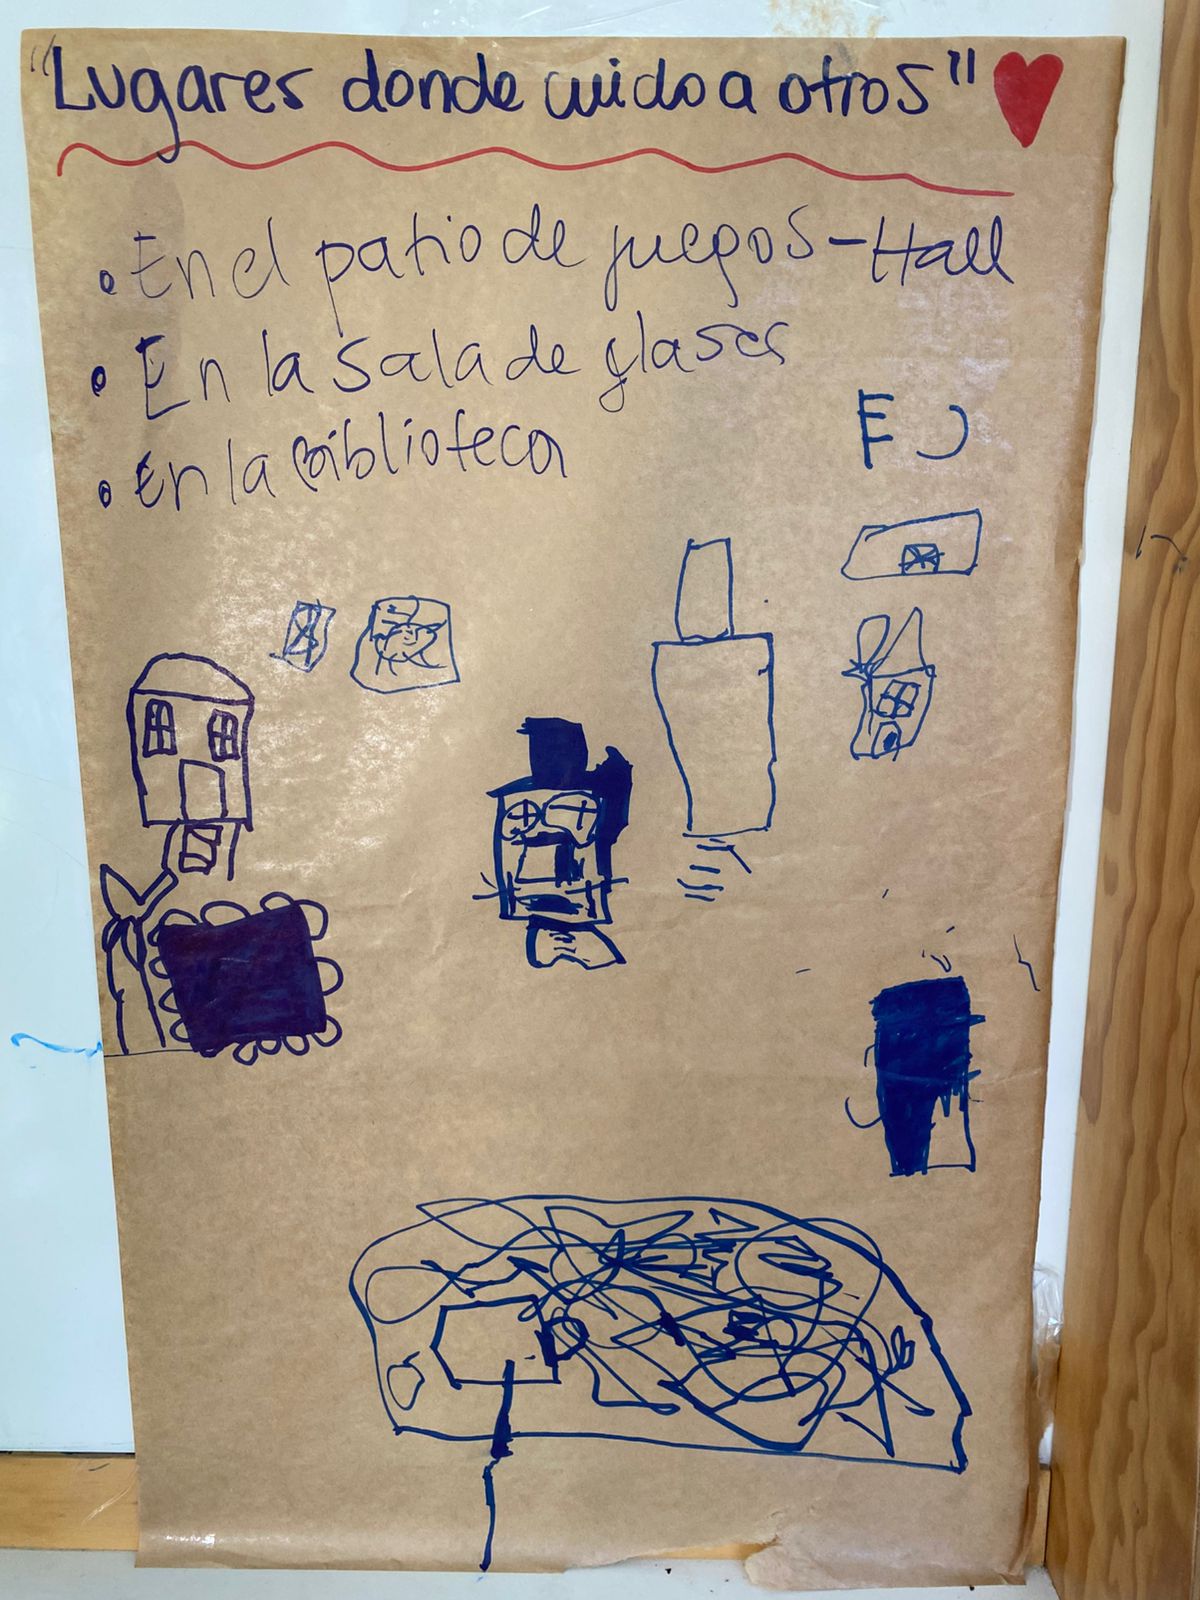 "Lugares donde cuido a otros"
• En el patio de juegos - Hall
• En la sala de clases
• En la Biblioteca
F